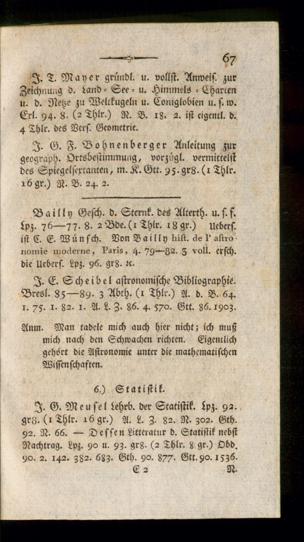 67
J. T. Mayer gründl. u. vollst. Anweis. zur
Zeichnung d. Land- See- u. Himmels-Charten
u. d. Netze zu Weltkugeln u. Coniglobien u. s. w.
Erl. 94. 8. (2 Thlr.) N. B. 18. 2. ist eigentl. d.
4 Thlr. des Verf. Geometrie.
J. G. F. Bohnenberger Anleitung zur
geograph. Ortsbestimmung, vorzügl. vermittelst
des Spiegelsextanten, m. K. Gtt. 95. gr8. (1 Thlr.
16 gr.) N. B. 24. 2.
Bailly Gesch. d. Sternk. des Alterth. u. s. f.
Lpz. 76—77. 8. 2 Bde. (1 Thlr. 18 gr.) Uebers.
ist C. E. Wünsch. Von Bailly hist. de l' astro-
nomie moderne, Paris, 4. 79—82. 3 voll. ersch.
die Uebers. Lpz. 96. gr8. ꝛc.
J. E. Scheibel astronomische Bibliographie.
Bresl. 85—89. 3 Abth. (1 Thlr.) A. d. B. 64.
1. 75. 1. 82. 1. A. L. Z. 86. 4. 570. Gtt. 86. 1903.
Anm. Man tadele mich auch hier nicht; ich muß
mich nach den Schwachen richten. Eigentlich
gehört die Astronomie unter die mathematischen
Wissenschaften.
6.) Statistik.
J. G. Meusel Lehrb. der Statistik. Lpz. 92.
gr8. (1 Thlr. 16 gr.) A. L. Z. 82. N. 302. Gth.
92. N. 66. — Dessen Litteratur d. Statistik nebst
Nachtrag. Lpz. 90 u. 93. gr8. (2 Thlr. 8 gr.) Obd.
90. 2. 142. 382. 683. Gth. 90. 877. Gtt. 90. 1536.
E 2 N.